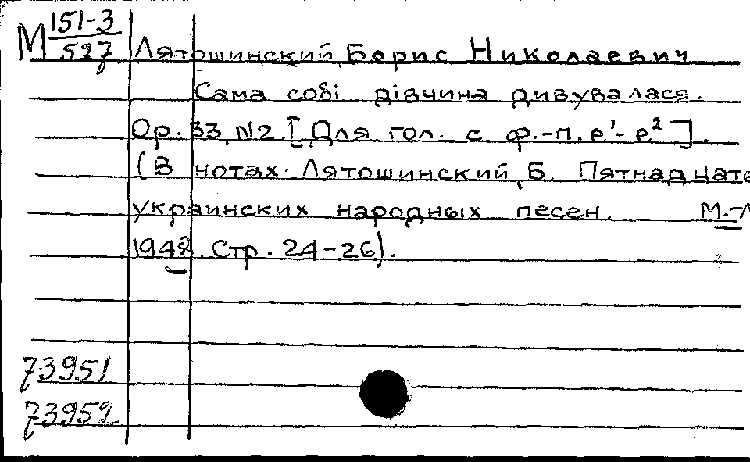 М 151-3
527
Лятошинский Борис Николаевич
Сама собі дівчина дивувалася.
Op. 33 N2. [Для гол. с ф.-п. e¹-e²].
(В нотах: Лятошинский, Б. Пятнадцать
украинских народных песен. М.-Л
1942 Стр. 24-26).
73951
73959